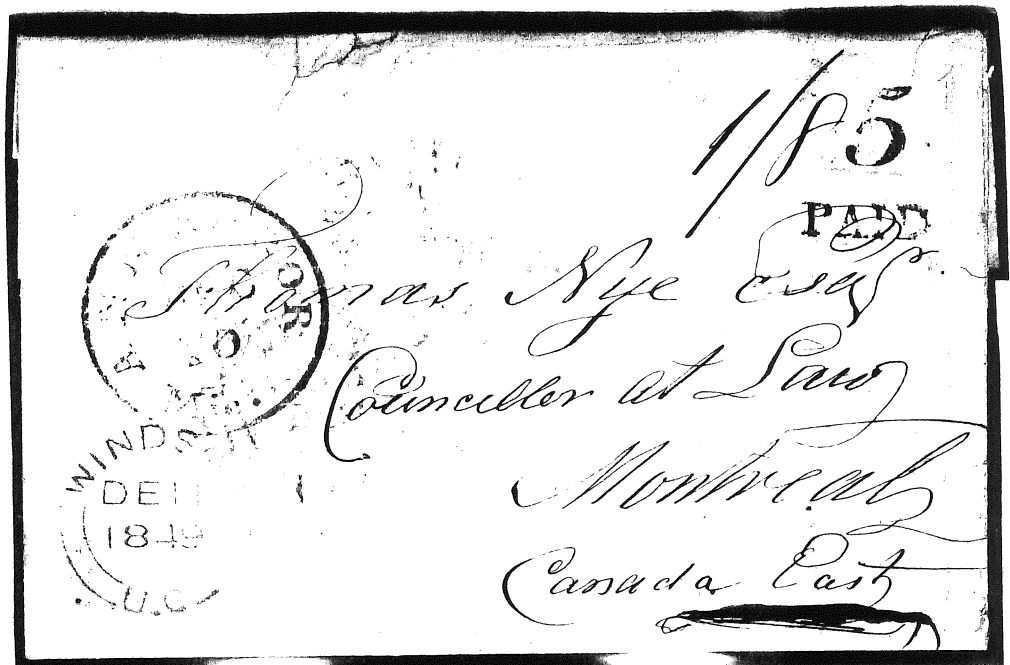 1/8 5
PAID
Thomas Nye Esqr.
Counceller at Law
Montreal
Canada East
OR
WINDSOR
DE 11
1849
U.C